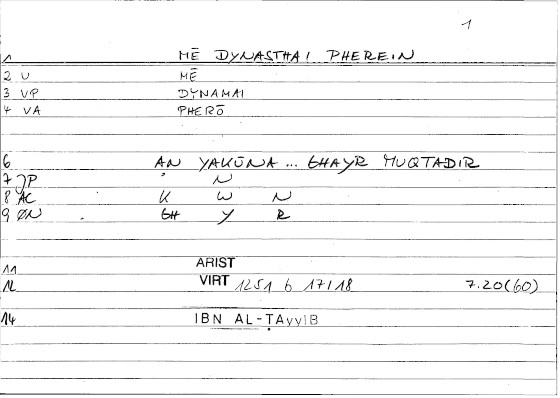 1
1 MĒ DYNASTHAI PHEREIN
2 U MĒ
3 VP DYNAMAI
4 VA PHERŌ
6 AN YAKŪNA ... GHAYR MUQTADIR
7 JP ʾ N
8 AC K W N
9 ØN GH Y R
11 ARIST
12 VIRT 1251 b 17/18 7.20(60)
14 IBN AL-ṬAyyIB